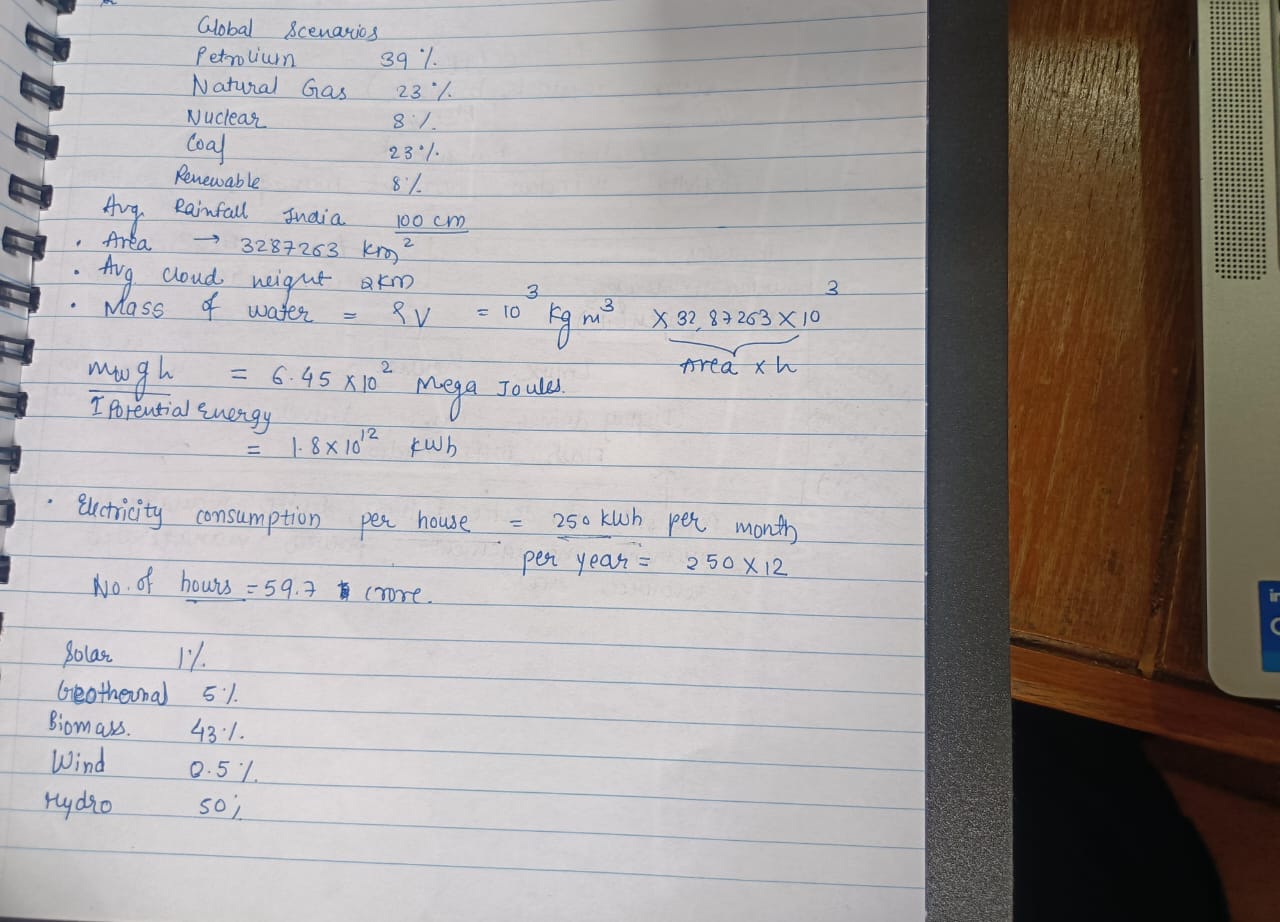 Global Scenarios
Petrolium 39 %.
Natural Gas 23 %.
Nuclear 8 %.
Coal 23 %.
Renewable 8 %
Avg. Rainfall India 100 cm
• Area → 3287263 km²
• Avg cloud height 2km
• Mass of water = ρV = 10³ kg m³ × 32,87263 × 10³
Area × h
mwgh = 6.45 × 10² Mega Joules.
↑ Potential Energy
= 1.8 × 10¹² kwh
• Electricity consumption per house = 250 kwh per month
per year = 250 × 12
No. of hours = 59.7 crore.
Solar 1%.
Geothermal 5%.
Biomass. 43%.
Wind 0.5%.
Hydro 50%
in